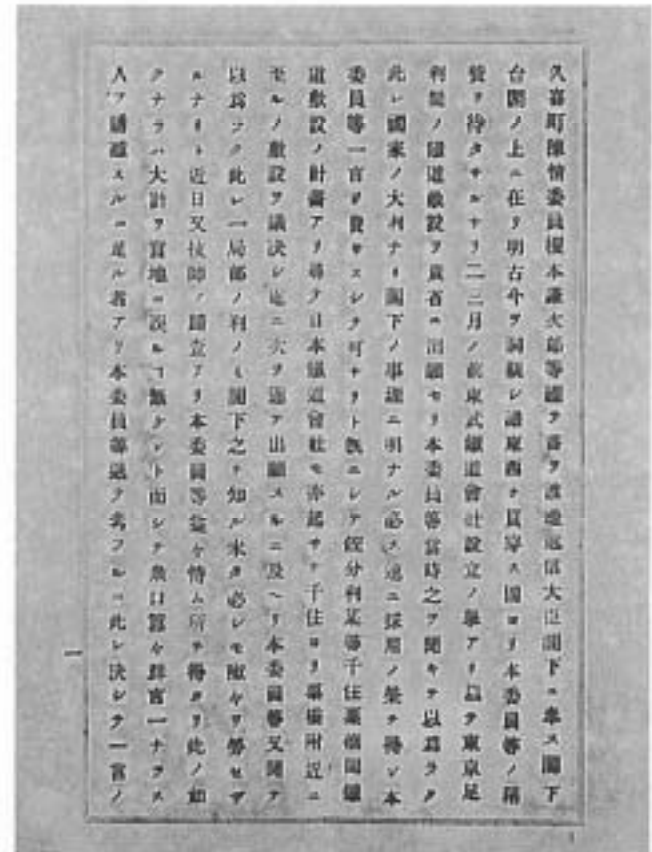 久喜町陳情委員榎本謙次郎等謹テ書ヲ遞信大臣閣下ニ奉ス閣下
台閣ノ上ニ在リ明古今ヲ洞観シ東西ナ具ス固ヨリ本委員等ノ
ヲ待タサルナリ二三月ノ前東武鐵道會社設立ノ擧アリ以テ東京足
利間ノ鐵道敷設ヲ貴省ニ出願セリ本委員等當時之ヲ聞キテ以爲ラク
此レ國家ノ大利ナリ閣下ノ事理ニ明ナル必ス速ニ採用ノ榮ヲ得ン本
委員等一言ヲ費サスシテ可ナリト既ニシテ分利某等千住幕間鐵
道敷設ノ計畫アリ尋テ日本鐵道會社モ亦起チテ千住ヨリ幸手附近ニ
至ルノ敷設ヲ議決シニテ出願スルニ及ヘリ本委員等又聞テ
以爲ラク此レ一局部ノ利ノミ閣下之ヲ知ル未タ必シモヲ勞セザ
ルナリト近日又技師ノアリ本委員等益々恃ム所ヲ得タリ此ノ如
クナラハ大計ヲ實地ニ誤ルコ無ケント而シテ衆口囂々群言一ナラス
人ヲスルニ足ル者アリ本委員等フルニ此レ決シテ一言ノ
一